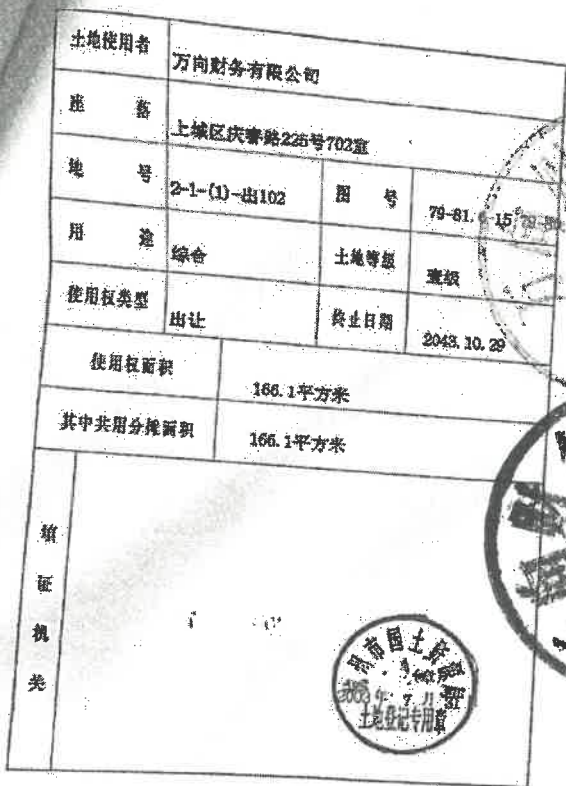 土地使用者 万向财务有限公司
座落 上城区庆春路225号702室
地号 2-1-(1)-出102 图号 79-81.6-15
用途 综合 土地等级 壹级
使用权类型 出让 终止日期 2043.10.29
使用权面积 166.1平方米
其中共用分摊面积 166.1平方米
填证机关
州市国土资源局
年 7 月
土地登记专用章